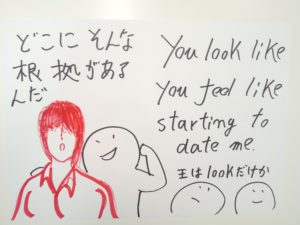 どこにそんな
根拠がある
んだ
You look like
you feel like
starting to
date me.
王はlookだけか